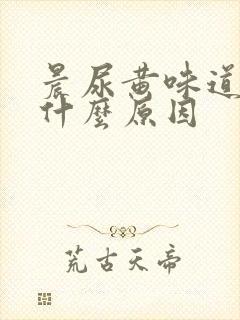 晨尿黄味道
什麼原因
荒古天帝